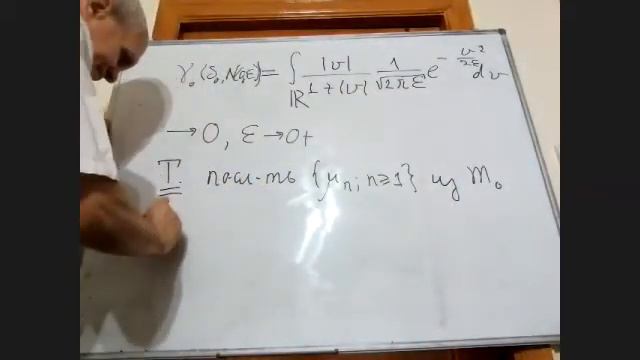 γ₀(δ₀, N(0,ε)) = ∫_ℝ |v| / (1+|v|) 1/√(2πε) e^{-v²/2ε} dv
→ 0, ε → 0+
T. посл-ть {μₙ; n≥1} из M₀